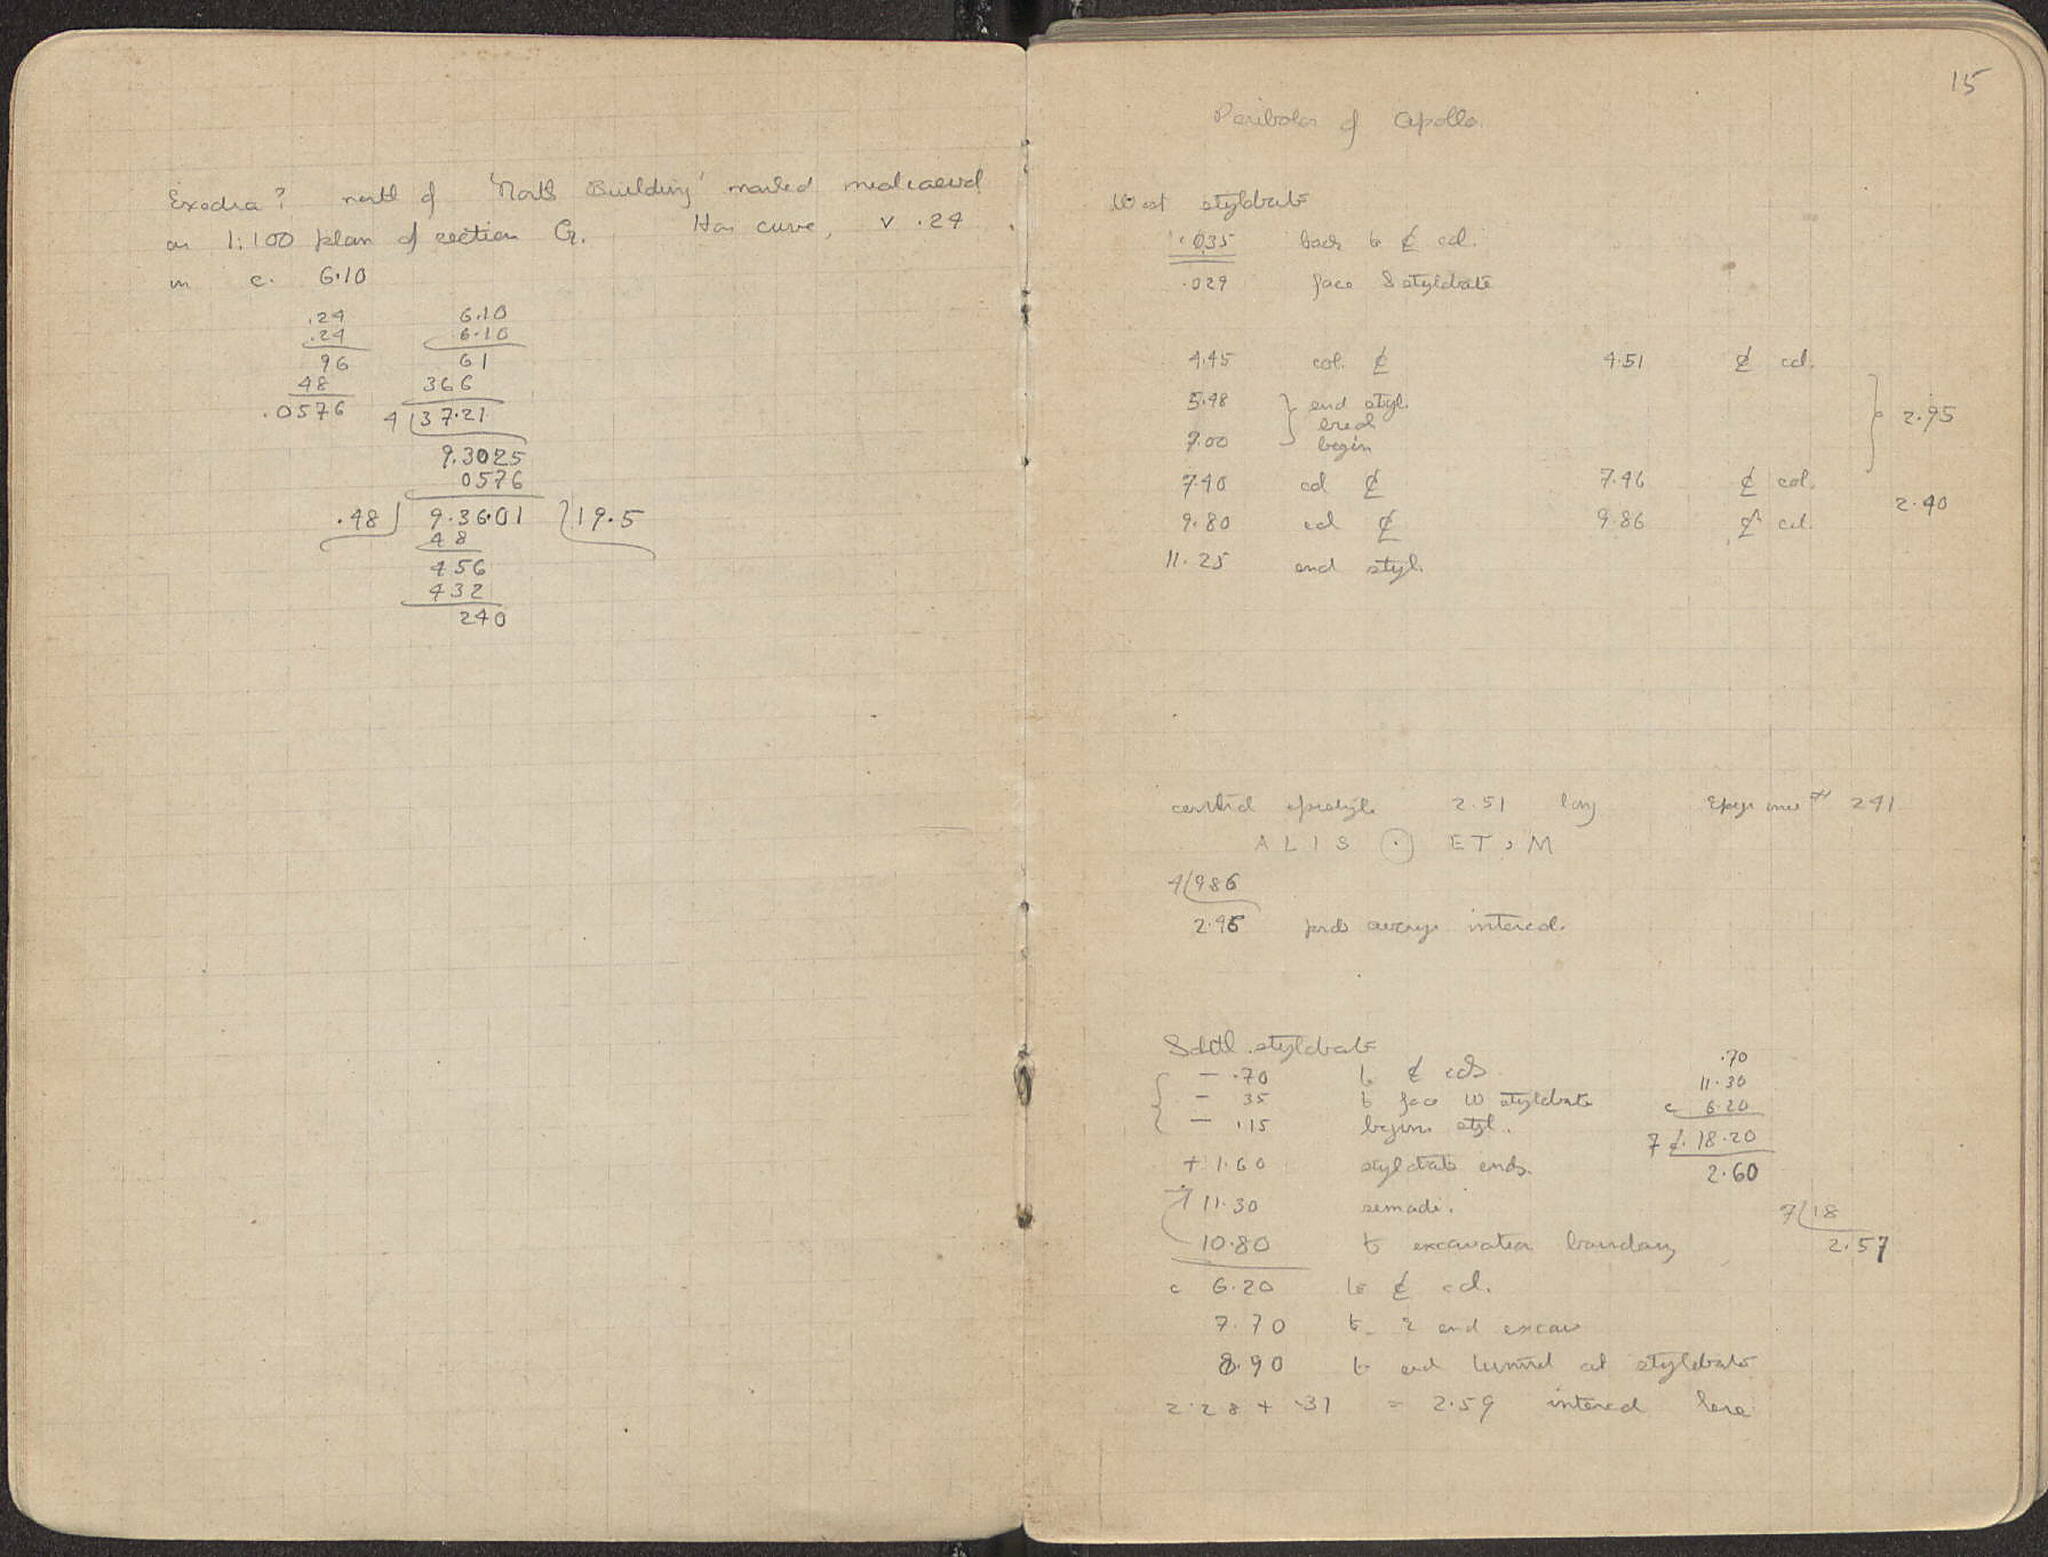 Exedra? north of 'North Building' marked mediaeval
on 1:100 plan of section G. Has curve, v .24
in c. 6.10
.24 6.10
.24 6.10
96 61
48 366
.0576 4 37.21
9.3025
0576
.48 9.3601 19.5
48
456
432
240
15
Peribolos of Apollo.
West stylobate
.035 back to ⅊ col.
.029 face S stylobate
4.45 col. ⅊ 4.51 ⅊ col.
5.48 end styl.
break 2.95
7.00 begin
7.40 col ⅊ 7.46 ⅊ col.
2.40
9.80 col ⅊ 9.86 ⅊ col.
11.25 end styl.
central epistyle 2.51 long 241
A L I S ⊙ E T , M
4 986
2.46 average intercol.
South stylobate
- .70 to ⅊ cols .70
- 35 to face W stylobate 11.30
- .15 begin styl. c 6.20
7 18.20
+ 1.60 stylobate ends. 2.60
+ 11.30 7 18
10.80 to excavation boundary 2.57
c 6.20 to ⅊ col.
7.70 to end excav
8.90 to end tunnel at stylobate
2.28 + .31 = 2.59 intercol here